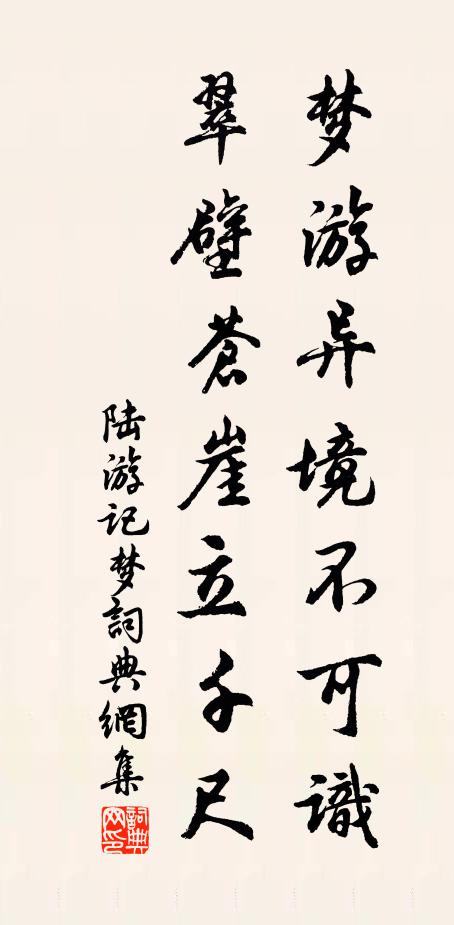 梦游异境不可識
翠壁苍崖立千尺
陆游记梦詞典網集
詞典网印